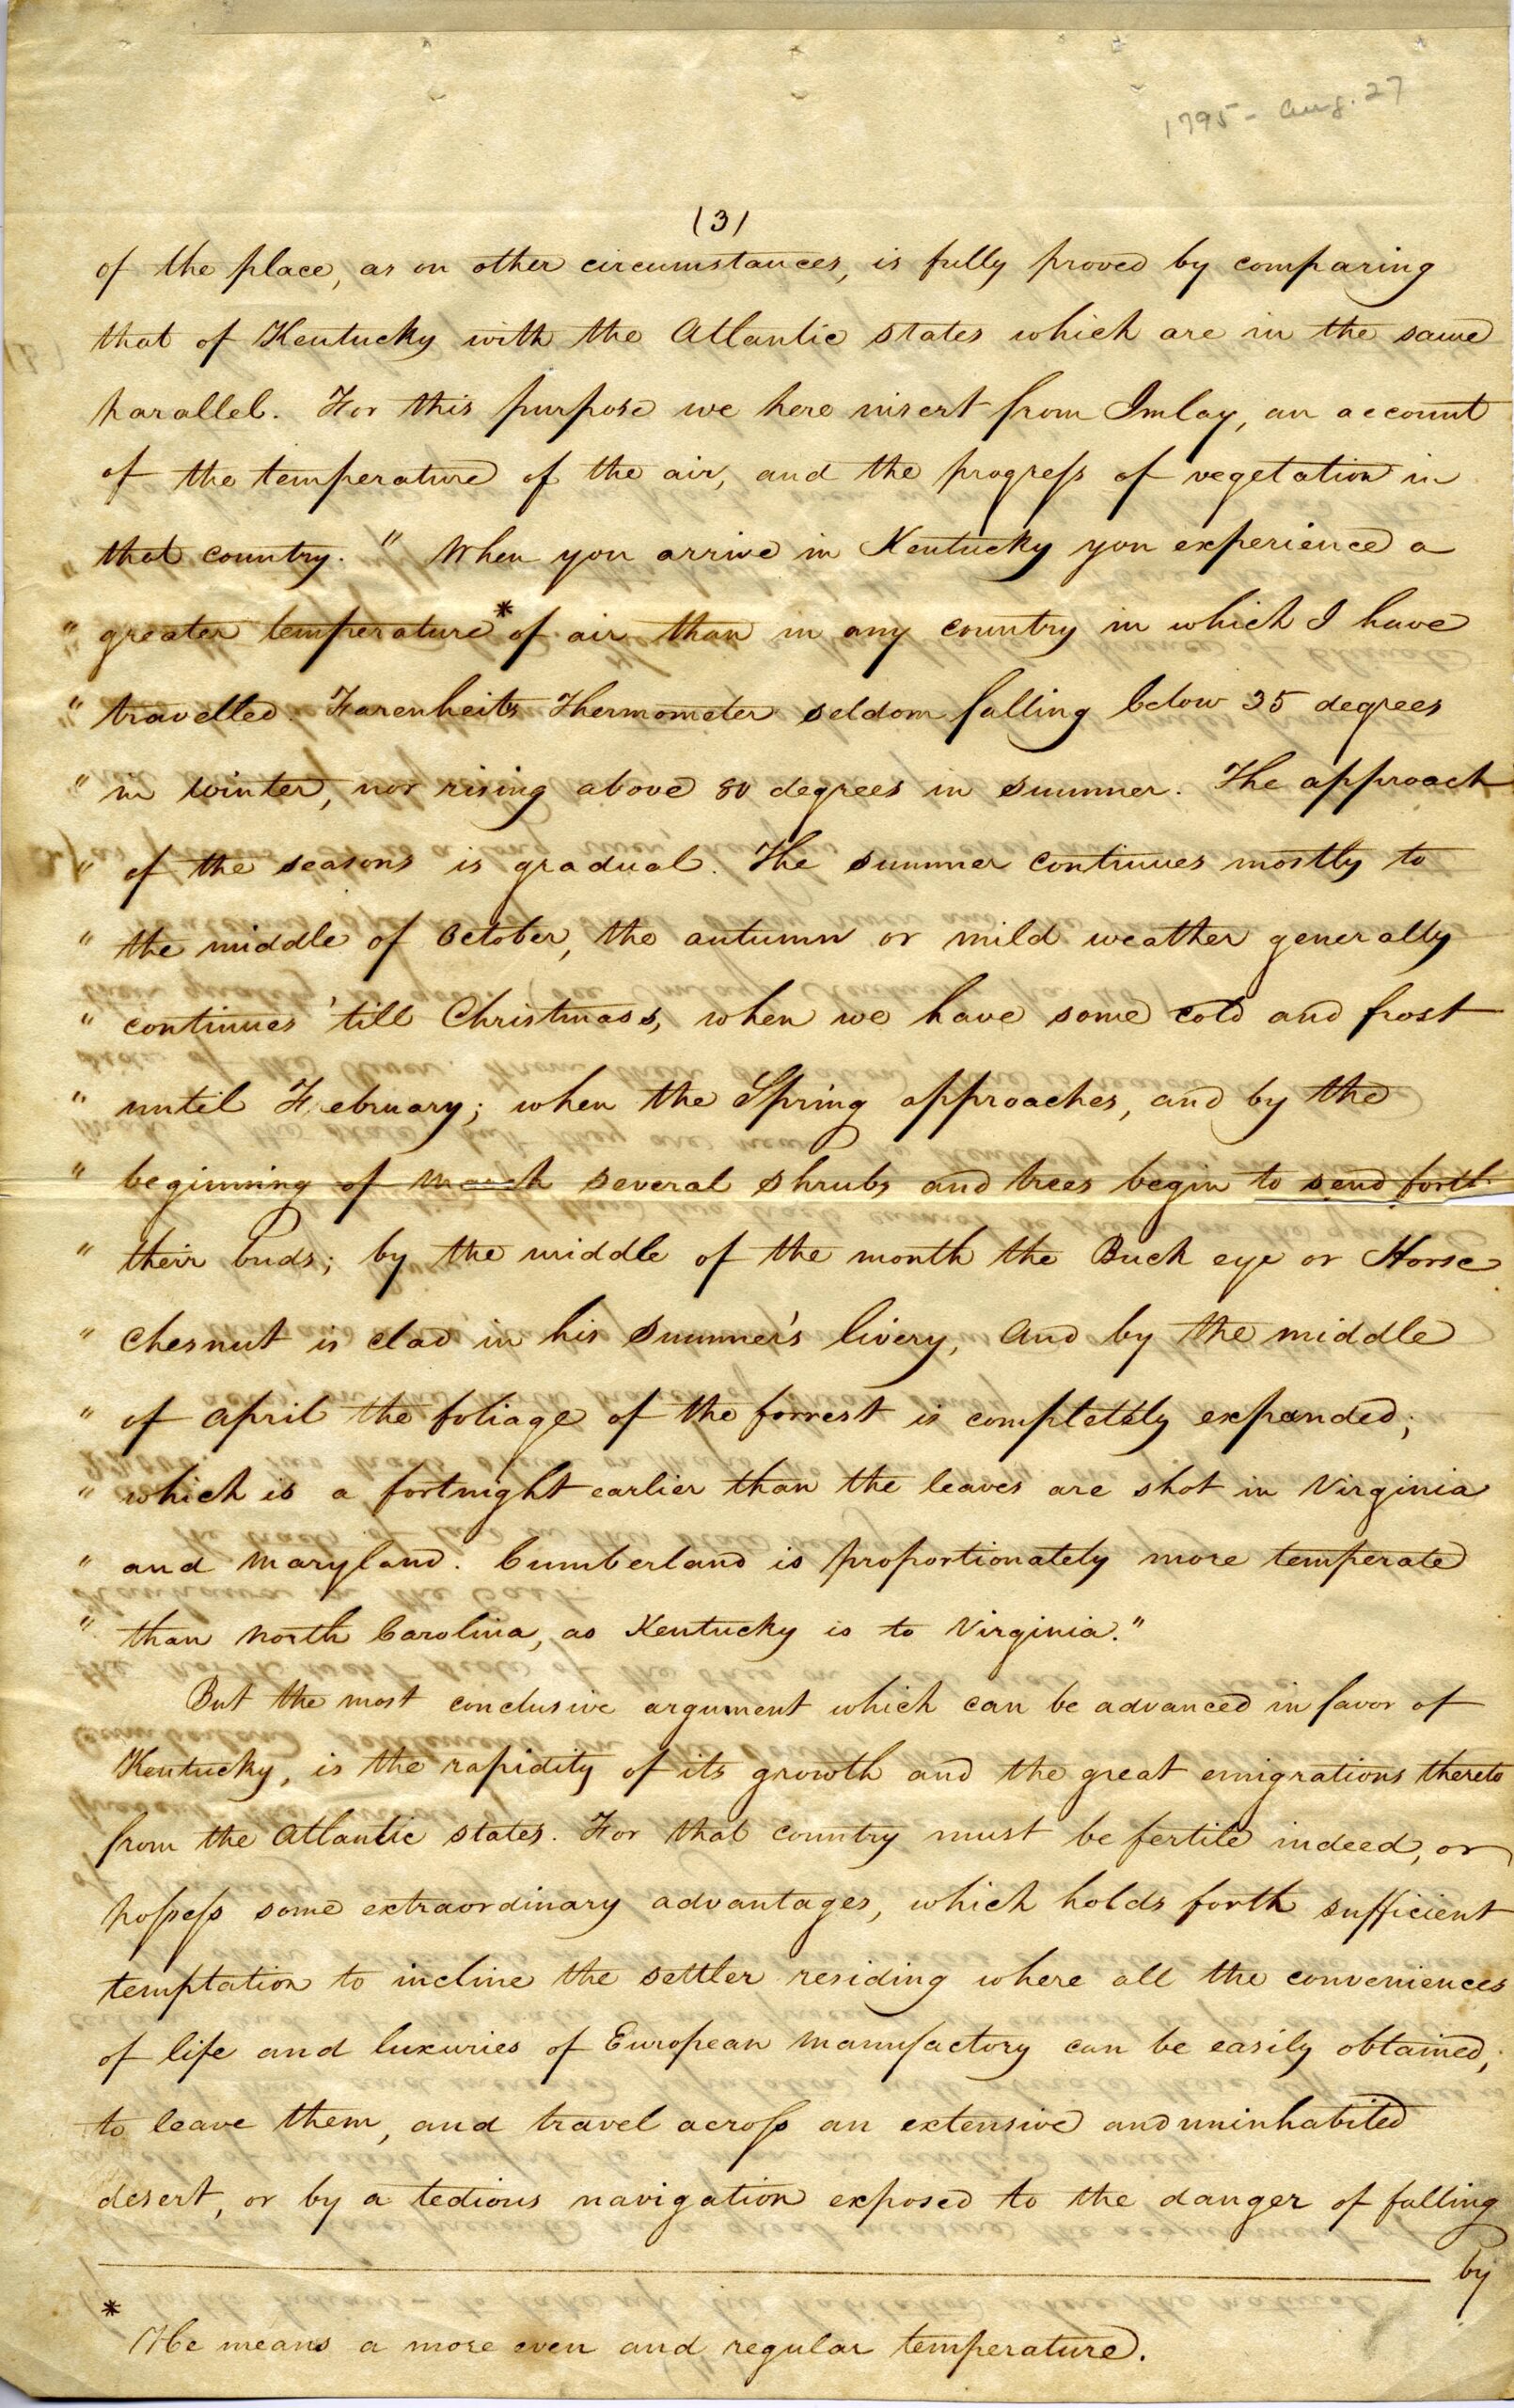 1795 - Aug. 27
(3)
of the place, as on other circumstances, is fully proved by comparing
that of Kentucky with the Atlantic states which are in the same
parallel. For this purpose we here insert from Imlay, an account
of the temperature of the air, and the progreſs of vegetation in
that country. " When you arrive in Kentucky you experience a
" greater temperature* of air than in any country in which I have
" travelled. Farenheits Thermometer seldom falling below 35 degrees
" in winter, nor rising above 80 degrees in summer. The approach
" of the seasons is gradual. The summer continues mostly to
" the middle of October, the autumn or mild weather generally
" continues 'till Christmass, when we have some cold and frost
" until February; when the Spring approaches, and by the
" beginning of March several shrubs and trees begin to send forth
" their buds; by the middle of the month the Buck eye or Horse
" chesnut is clad in his summer's livery, and by the middle
" of april the foliage of the forrest is completely expanded;
" which is a fortnight earlier than the leaves are shot in Virginia
" and Maryland. Cumberland is proportionately more temperate
" than North Carolina, as Kentucky is to Virginia."
But the most conclusive argument which can be advanced in favor of
Kentucky, is the rapidity of its growth and the great emigrations thereto
from the Atlantic states. For that country must be fertile indeed, or
poſseſs some extraordinary advantages, which holds forth sufficient
temptation to incline the settler residing where all the conveniences
of life and luxuries of European manufactory can be easily obtained,
to leave them, and travel acroſs an extensive and uninhabited
desert, or by a tedious navigation exposed to the danger of falling
by
* He means a more even and regular temperature.